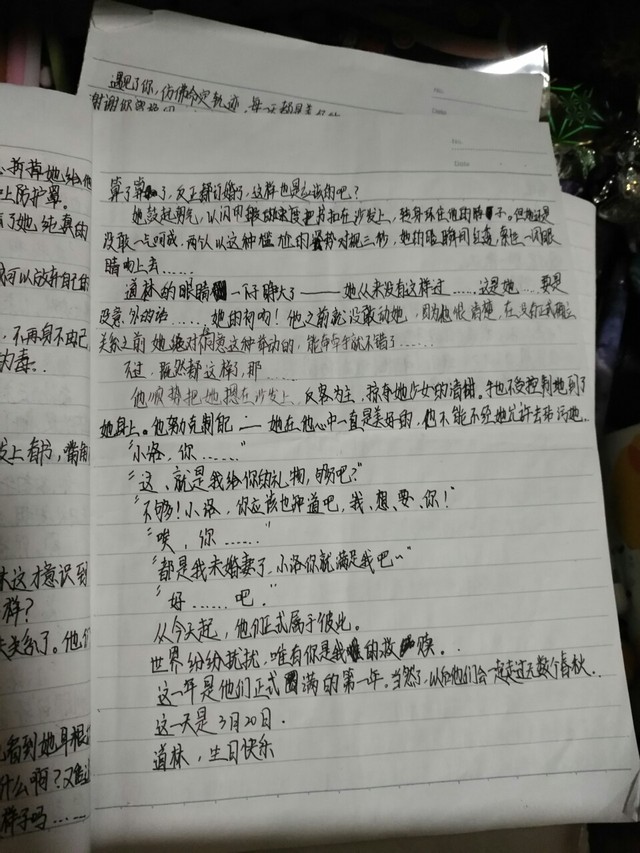 遇见了你，仿佛命定轨迹，每一天都是
谢谢你
算了算了，反正都订婚了，这样也是应该的吧？
她鼓起勇气，以闪电般的速度把书扣在沙发上，转身环住他的脖子。但她还是
没敢一气呵成，两个人以这种尴尬的姿势对视三秒，她的眼睛瞬间
睛吻上去……
道林的眼睛一下子睁大了——她从来没有这样过……这是她……要是
没意外的话……她的初吻！他之前就没敢动她，因为他很清楚，在没有正式确立
关系之前她绝对不同意这种举动的，能牵牵手就不错了……
不过，既然都这样了，那……
他顺势把她摁在沙发上，反客为主，掠夺她少女的清甜。手也不受控制地到了
她身上。他努力克制自己——她在他心中一直是美好的，他不能不经她允许去玷污她…
“小洛，你……”
“这、就是我给你的礼物，够吧？”
“不够！小洛，你应该也知道吧，我、想、要、你！”
“唉，你……”
“都是我未婚妻了，小洛你就满足我吧~”
“好……吧。”
从今天起，他们正式属于彼此。
世界纷纷扰扰，唯有你是我的救赎。
这一年是他们正式圆满的第一年。当然了，以后他们会一起走过无数个春秋。
这一天是3月20日。
道林，生日快乐
折掉她给他
上防护罩。
了她纯真的
可以放弃自己的
，不再身不由己
为毒..
发上看书，嘴角
这才意识到
样？
关系了。他们
看到她耳根
什么啊？又
样子吗……